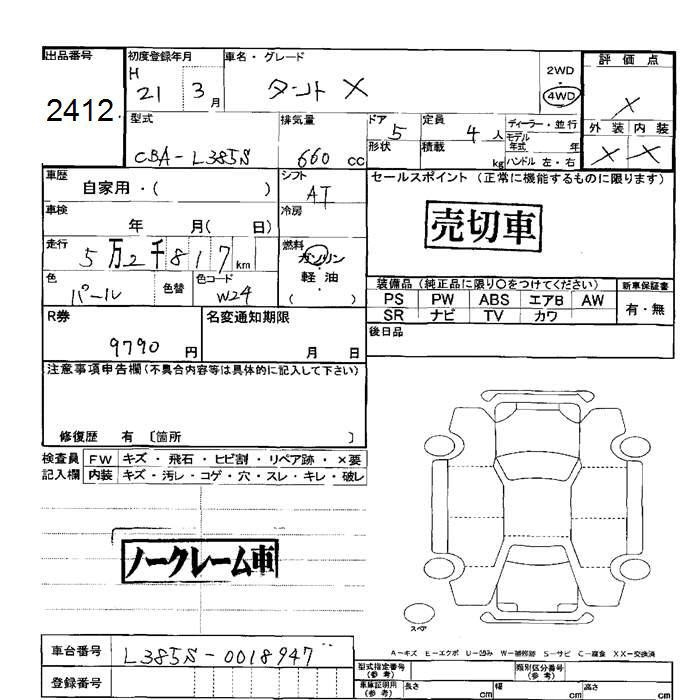 出品番号 初度登録年月 車名・グレード 評価点
2412 H 21 3月 タント X 2WD 4WD X
型式 排気量 ドア 定員 ディーラー・並行 外装 内装
CBA-L385S 660 cc 5 4人 モデル年式 年 X X
形状 積載 kg ハンドル 左・右
車歴 自家用・( ) シフト AT セールスポイント (正常に機能するものに限ります)
車検 年 月( 日) 冷房
売切車
走行 5万2千817km 燃料 ガソリン 軽油 ( )
色 パール 色替 色コード W24
装備品 (純正品に限り○をつけてください) 新車保証書
PS PW ABS エアB AW 有・無
SR ナビ TV カワ
R券 9790円 名変通知期限 月 日 後日品
注意事項申告欄(不具合内容等は具体的に記入して下さい)
修復歴 有 〔箇所 〕
検査員 FW キズ・飛石・ヒビ割・リペア跡・×要
記入欄 内装 キズ・汚レ・コゲ・穴・スレ・キレ・破レ
ノークレーム車
スペア
A-キズ E-エクボ U-凹み W-補修跡 S-サビ C-腐食 XX-交換済
車台番号 L385S-0018947
登録番号
型式指定番号(参考) 類別区分番号(参考)
車庫証明用(参考) 長さ cm 幅 cm 高さ cm